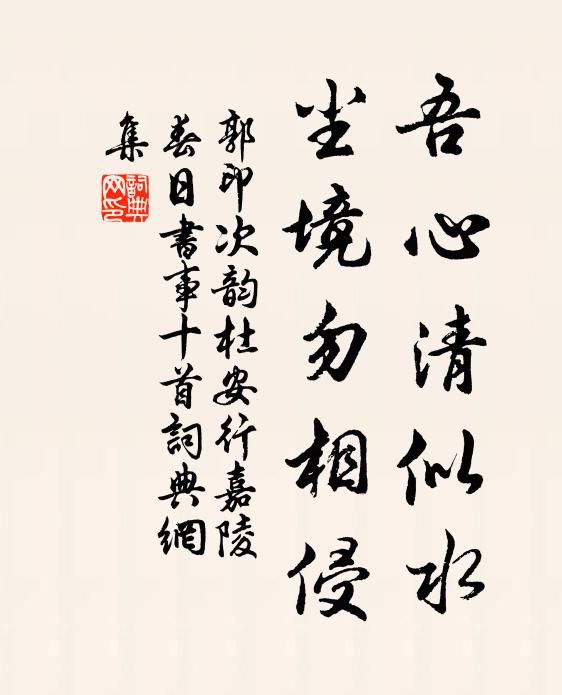 吾心清似水
尘境勿相侵
郭印次韵杜安行嘉陵
春日書事十首詞典網
集
詞典
网印